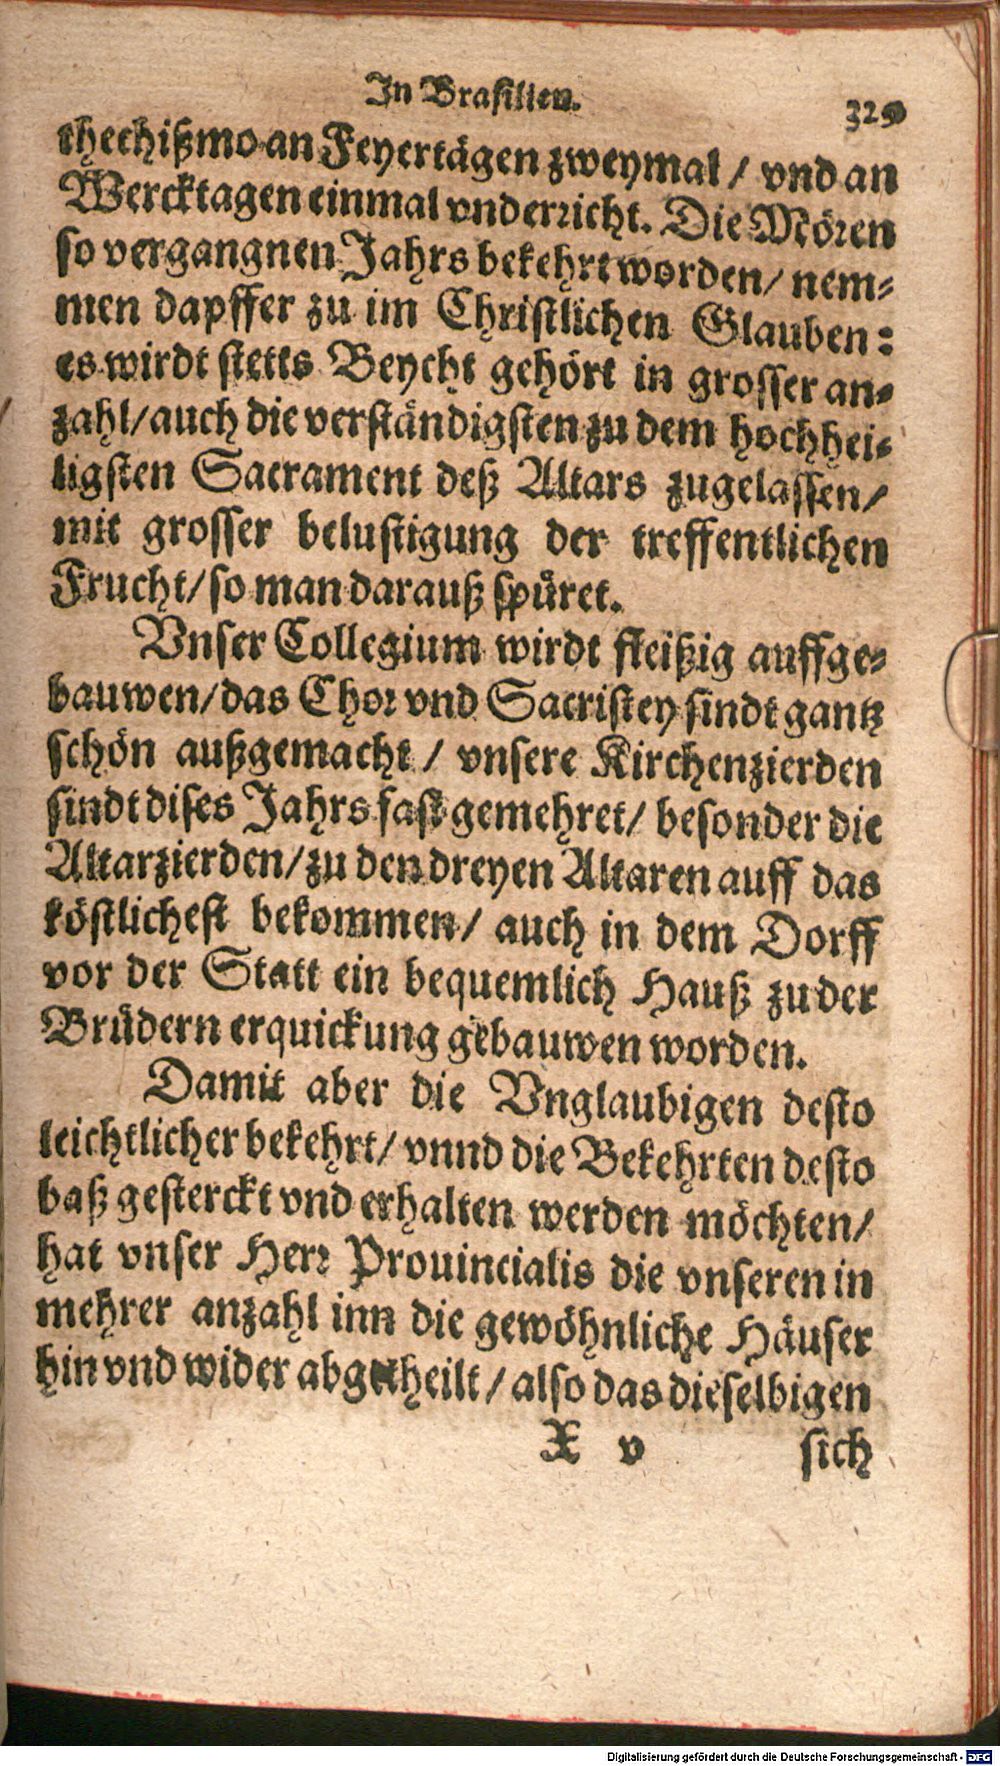 In Brasilien. 329
thechißmo an Feyertägen zweymal / vnd an
Wercktagen einmal vnderricht. Die Mören
so vergangnen Jahrs bekehrt worden / nem-
men dapffer zu im Christlichen Glauben:
es wirdt stetts Beycht gehört in grosser an-
zahl / auch die verständigsten zu dem hochhei-
ligsten Sacrament deß Altars zugelassen /
mit grosser belustigung der treffentlichen
Frucht / so man darauß spüret.
Vnser Collegium wirdt fleißig auffge-
bauwen / das Chor vnd Sacristey sindt gantz
schön außgemacht / vnsere Kirchenzierden
sindt dises Jahrs fast gemehret / besonder die
Altarzierden / zu den dreyen Altaren auff das
köstlichest bekommen / auch in dem Dorff
vor der Statt ein bequemlich Hauß zu der
Brüdern erquickung gebauwen worden.
Damit aber die Vnglaubigen desto
leichtlicher bekehrt / vnnd die Bekehrten desto
baß gesterckt vnd erhalten werden möchten /
hat vnser Herr Prouincialis die vnseren in
mehrer anzahl inn die gewöhnliche Häuser
hin vnd wider abgetheilt / also das dieselbigen
X v sich
Digitalisierung gefördert durch die Deutsche Forschungsgemeinschaft - DFG